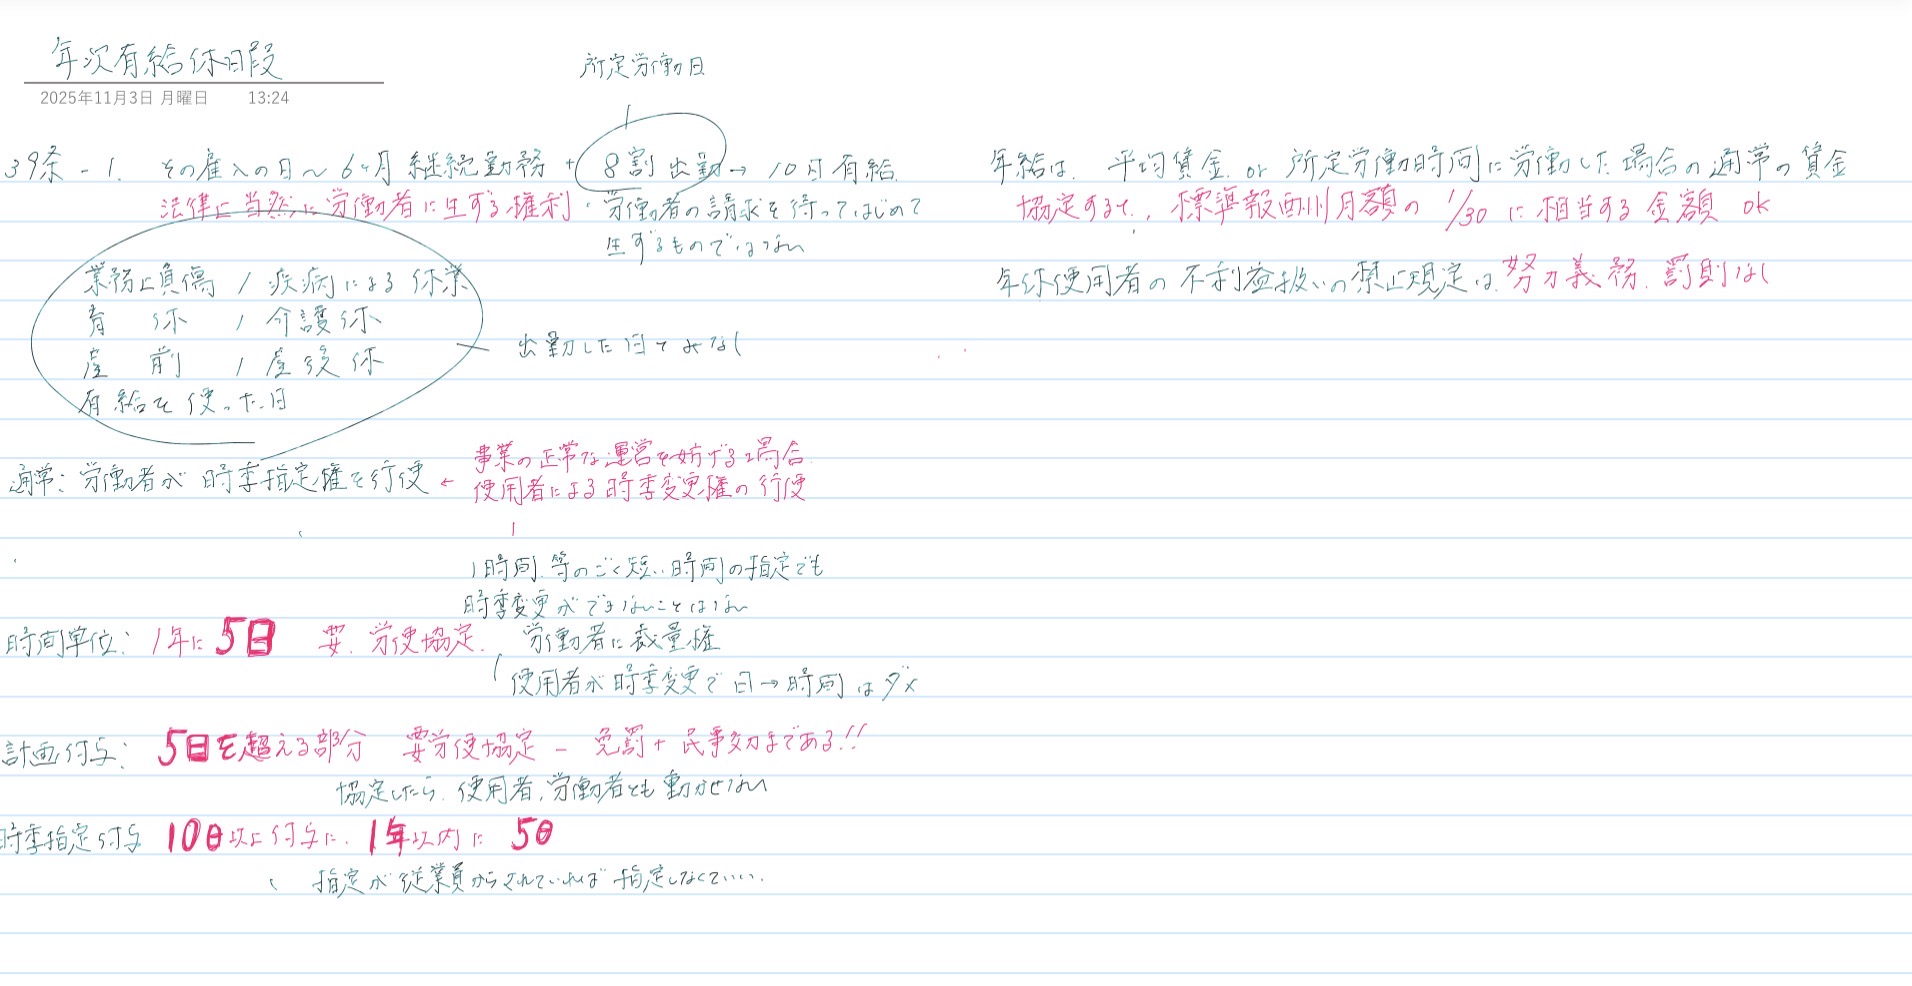 年次有給休日暇
2025年11月3日 月曜日 13:24
所定労働日
39条-1. その雇入の日～6ヶ月 継続勤務 + 8割 出勤 → 10日有給
法律に当然に労働者に生ずる権利・労働者の請求を待ってはじめて
生ずるものではない
業務上負傷 / 疾病による休業
育休 / 介護休
産前 / 産後休
有給を使った日
出勤した日とみなし
通常: 労働者が時季指定権を行使 ← 事業の正常な運営を妨げる場合
使用者による時季変更権の行使
1時間等のごく短い時間の指定でも
時季変更ができないことはない
時間単位: 1年に 5日 要.労使協定. 労働者に裁量権
使用者が時季変更で日→時間はダメ
計画付与: 5日を超える部分 要労使協定 - 免罰+民事効まである!!
協定したら、使用者、労働者とも動かせない
時季指定付与 10日以上付与に、1年以内に 5日
指定が従業員からされていれば指定しなくていい.
年給は、平均賃金 or 所定労働時間に労働した場合の通常の賃金
協定すると、標準報酬月額の 1/30 に相当する金額 OK
年休使用者の不利益扱いの禁止規定は、努力義務. 罰則なし